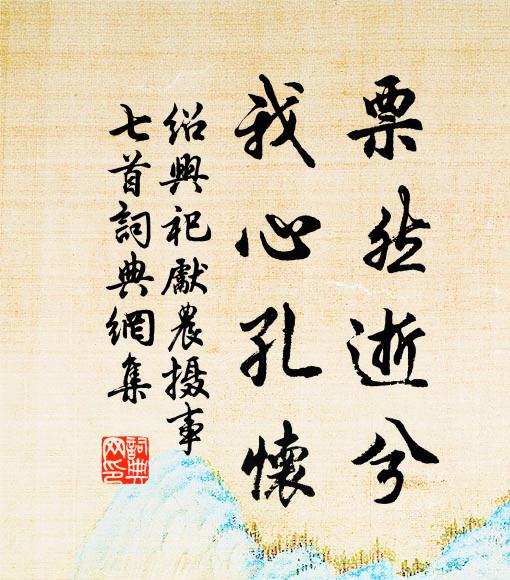 票然逝兮
我心孔懷
紹興祀獻農摄事
七首詞典網集
詞典網印